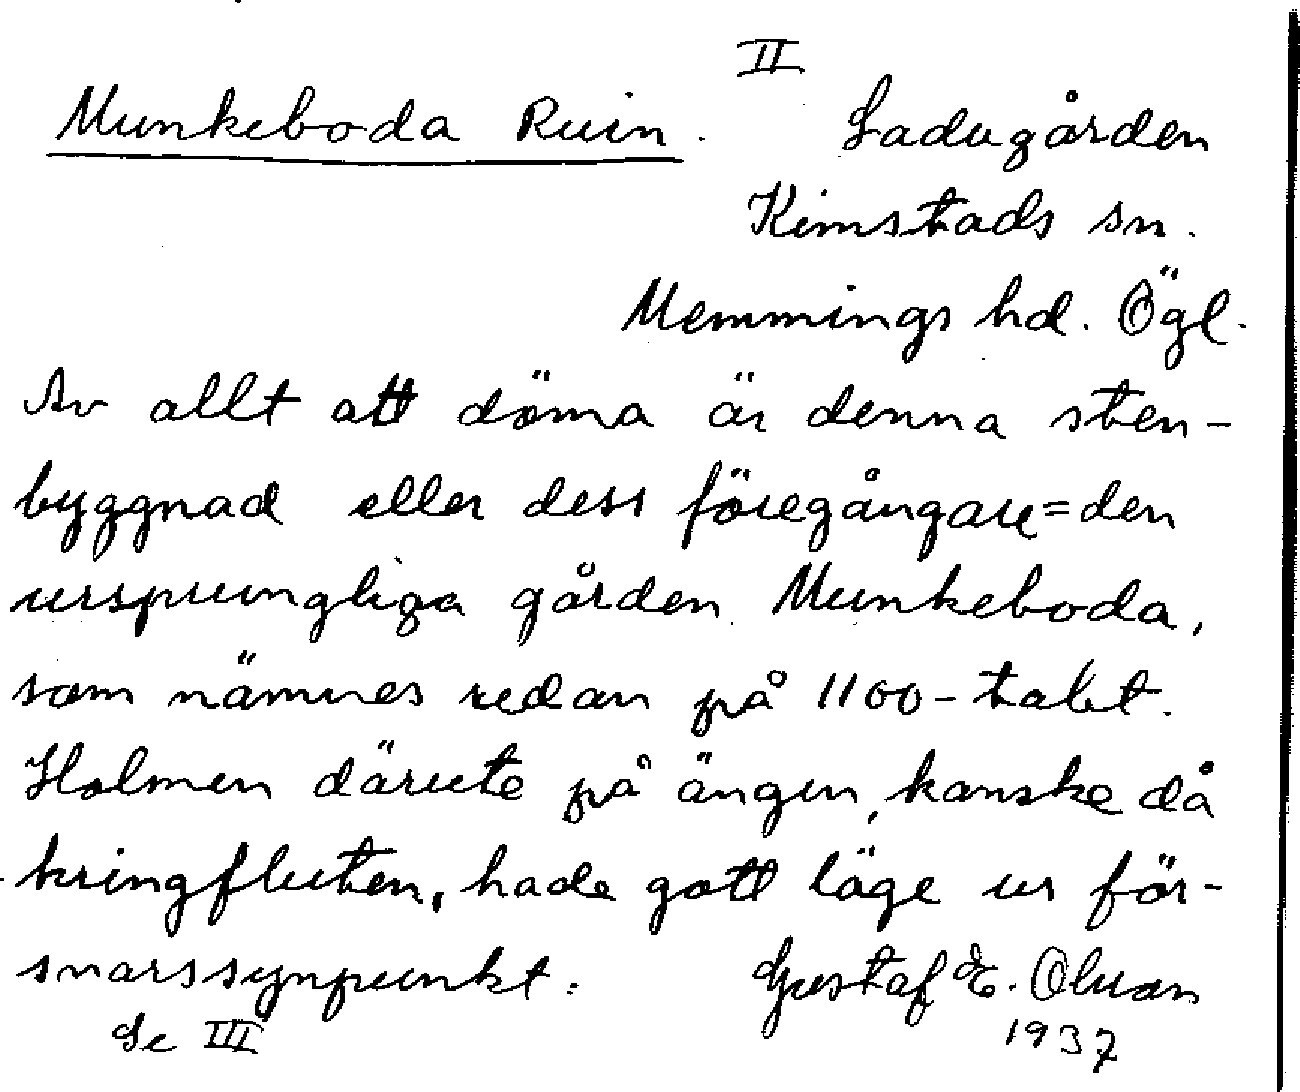 II
Munkeboda Ruin. Ladugården
Kimstads sn.
Memmings hd. Ögl.
Av allt att döma är denna sten-
byggnad eller dess föregångare=den
ursprungliga gården Munkeboda,
som nämnes redan på 1100-talet.
Holmen därute på ängen, kanske då
kringfluten, hade gott läge ur för-
svarssynpunkt. Gustaf E. Olsson
Se III 1937